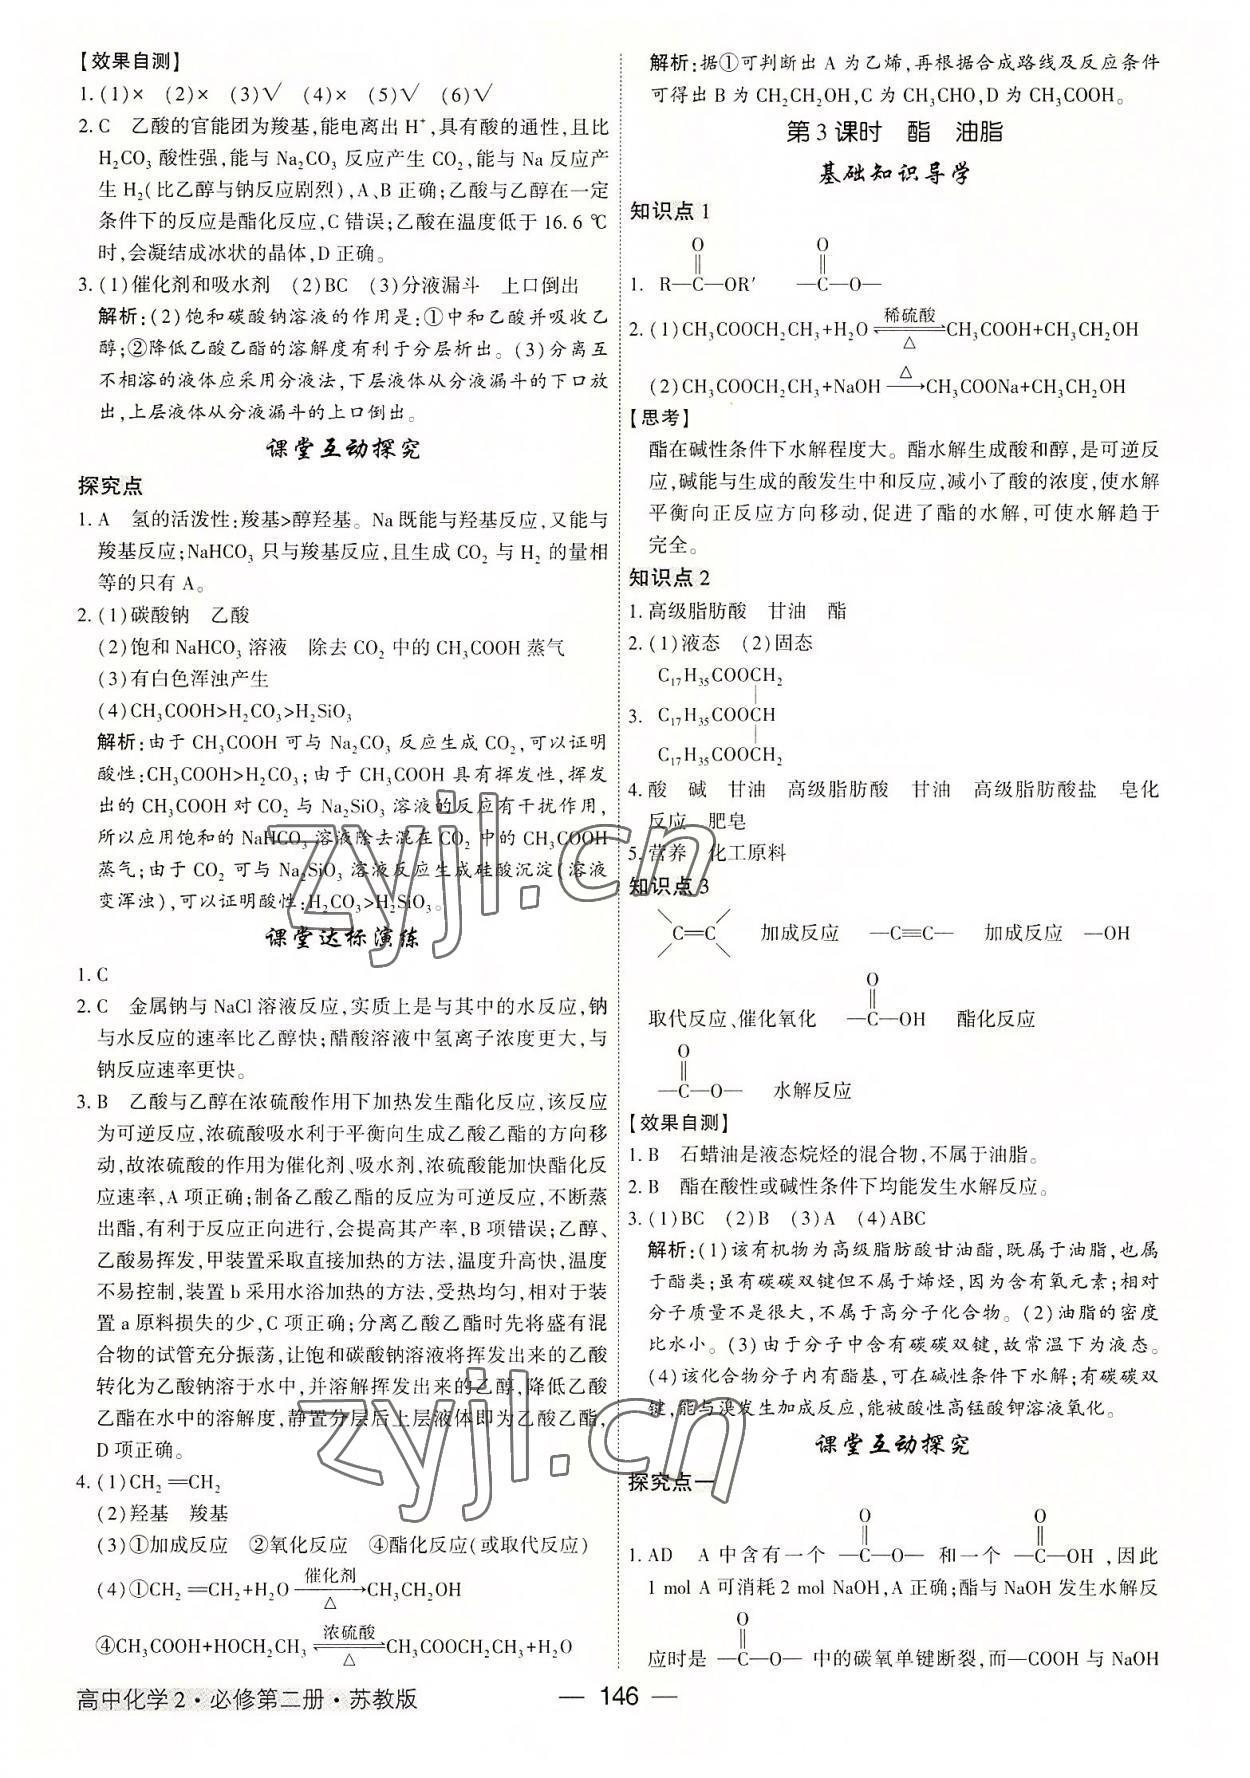 【效果自测】
1. (1)× (2)× (3)√ (4)× (5)√ (6)√
2. C 乙酸的官能团为羧基,能电离出 H⁺,具有酸的通性,且比
H₂CO₃ 酸性强,能与 Na₂CO₃ 反应产生 CO₂,能与 Na 反应产
生 H₂(比乙醇与钠反应剧烈),A、B 正确;乙酸与乙醇在一定
条件下的反应是酯化反应,C 错误;乙酸在温度低于 16.6 ℃
时,会凝结成冰状的晶体,D 正确。
3. (1)催化剂和吸水剂 (2)BC (3)分液漏斗 上口倒出
解析:(2)饱和碳酸钠溶液的作用是:①中和乙酸并吸收乙
醇;②降低乙酸乙酯的溶解度有利于分层析出。(3)分离互
不相溶的液体应采用分液法,下层液体从分液漏斗的下口放
出,上层液体从分液漏斗的上口倒出。
课堂互动探究
探究点
1. A 氢的活泼性:羧基>醇羟基。Na 既能与羟基反应,又能与
羧基反应;NaHCO₃ 只与羧基反应,且生成 CO₂ 与 H₂ 的量相
等的只有 A。
2. (1)碳酸钠 乙酸
(2)饱和 NaHCO₃ 溶液 除去 CO₂ 中的 CH₃COOH 蒸气
(3)有白色浑浊产生
(4)CH₃COOH>H₂CO₃>H₂SiO₃
解析:由于 CH₃COOH 可与 Na₂CO₃ 反应生成 CO₂,可以证明
酸性:CH₃COOH>H₂CO₃;由于 CH₃COOH 具有挥发性,挥发
出的 CH₃COOH 对 CO₂ 与 Na₂SiO₃ 溶液的反应有干扰作用,
所以应用饱和的 NaHCO₃ 溶液除去混在 CO₂ 中的 CH₃COOH
蒸气;由于 CO₂ 可与 Na₂SiO₃ 溶液反应生成硅酸沉淀(溶液
变浑浊),可以证明酸性:H₂CO₃>H₂SiO₃。
课堂达标演练
1. C
2. C 金属钠与 NaCl 溶液反应,实质上是与其中的水反应,钠
与水反应的速率比乙醇快;醋酸溶液中氢离子浓度更大,与
钠反应速率更快。
3. B 乙酸与乙醇在浓硫酸作用下加热发生酯化反应,该反应
为可逆反应,浓硫酸吸水利于平衡向生成乙酸乙酯的方向移
动,故浓硫酸的作用为催化剂、吸水剂,浓硫酸能加快酯化反
应速率,A 项正确;制备乙酸乙酯的反应为可逆反应,不断蒸
出酯,有利于反应正向进行,会提高其产率,B 项错误;乙醇、
乙酸易挥发,甲装置采取直接加热的方法,温度升高快,温度
不易控制,装置 b 采用水浴加热的方法,受热均匀,相对于装
置 a 原料损失的少,C 项正确;分离乙酸乙酯时先将盛有混
合物的试管充分振荡,让饱和碳酸钠溶液将挥发出来的乙酸
转化为乙酸钠溶于水中,并溶解挥发出来的乙醇,降低乙酸
乙酯在水中的溶解度,静置分层后上层液体即为乙酸乙酯,
D 项正确。
4. (1)CH₂═CH₂
(2)羟基 羧基
(3)①加成反应 ②氧化反应 ④酯化反应(或取代反应)
催化剂
(4)①CH₂═CH₂+H₂O ──→ CH₃CH₂OH
△
浓硫酸
④CH₃COOH+HOCH₂CH₃ ⇌ CH₃COOCH₂CH₃+H₂O
△
高中化学2·必修第二册·苏教版
解析:据①可判断出 A 为乙烯,再根据合成路线及反应条件
可得出 B 为 CH₂CH₂OH,C 为 CH₃CHO,D 为 CH₃COOH。
第 3 课时 酯 油脂
基础知识导学
知识点 1
O O
‖ ‖
1. R—C—OR′ —C—O—
稀硫酸
2. (1)CH₃COOCH₂CH₃+H₂O ⇌ CH₃COOH+CH₃CH₂OH
△
△
(2)CH₃COOCH₂CH₃+NaOH ──→ CH₃COONa+CH₃CH₂OH
【思考】
酯在碱性条件下水解程度大。酯水解生成酸和醇,是可逆反
应,碱能与生成的酸发生中和反应,减小了酸的浓度,使水解
平衡向正反应方向移动,促进了酯的水解,可使水解趋于
完全。
知识点 2
1. 高级脂肪酸 甘油 酯
2. (1)液态 (2)固态
C₁₇H₃₅COOCH₂
|
3. C₁₇H₃₅COOCH
|
C₁₇H₃₅COOCH₂
4. 酸 碱 甘油 高级脂肪酸 甘油 高级脂肪酸盐 皂化
反应 肥皂
5. 营养 化工原料
知识点 3
C═C 加成反应 —C≡C— 加成反应 —OH
O
‖
取代反应、催化氧化 —C—OH 酯化反应
O
‖
—C—O— 水解反应
【效果自测】
1. B 石蜡油是液态烷烃的混合物,不属于油脂。
2. B 酯在酸性或碱性条件下均能发生水解反应。
3. (1)BC (2)B (3)A (4)ABC
解析:(1)该有机物为高级脂肪酸甘油酯,既属于油脂,也属
于酯类;虽有碳碳双键但不属于烯烃,因为含有氧元素;相对
分子质量不是很大,不属于高分子化合物。(2)油脂的密度
比水小。(3)由于分子中含有碳碳双键,故常温下为液态。
(4)该化合物分子内有酯基,可在碱性条件下水解;有碳碳双
键,能与溴发生加成反应,能被酸性高锰酸钾溶液氧化。
课堂互动探究
探究点一
O O
‖ ‖
1. AD A 中含有一个 —C—O— 和一个 —C—OH ,因此
1 mol A 可消耗 2 mol NaOH,A 正确;酯与 NaOH 发生水解反
O
‖
应时是 —C—O— 中的碳氧单键断裂,而—COOH 与 NaOH
— 146 —
zyjl.cn
zyjl.cn